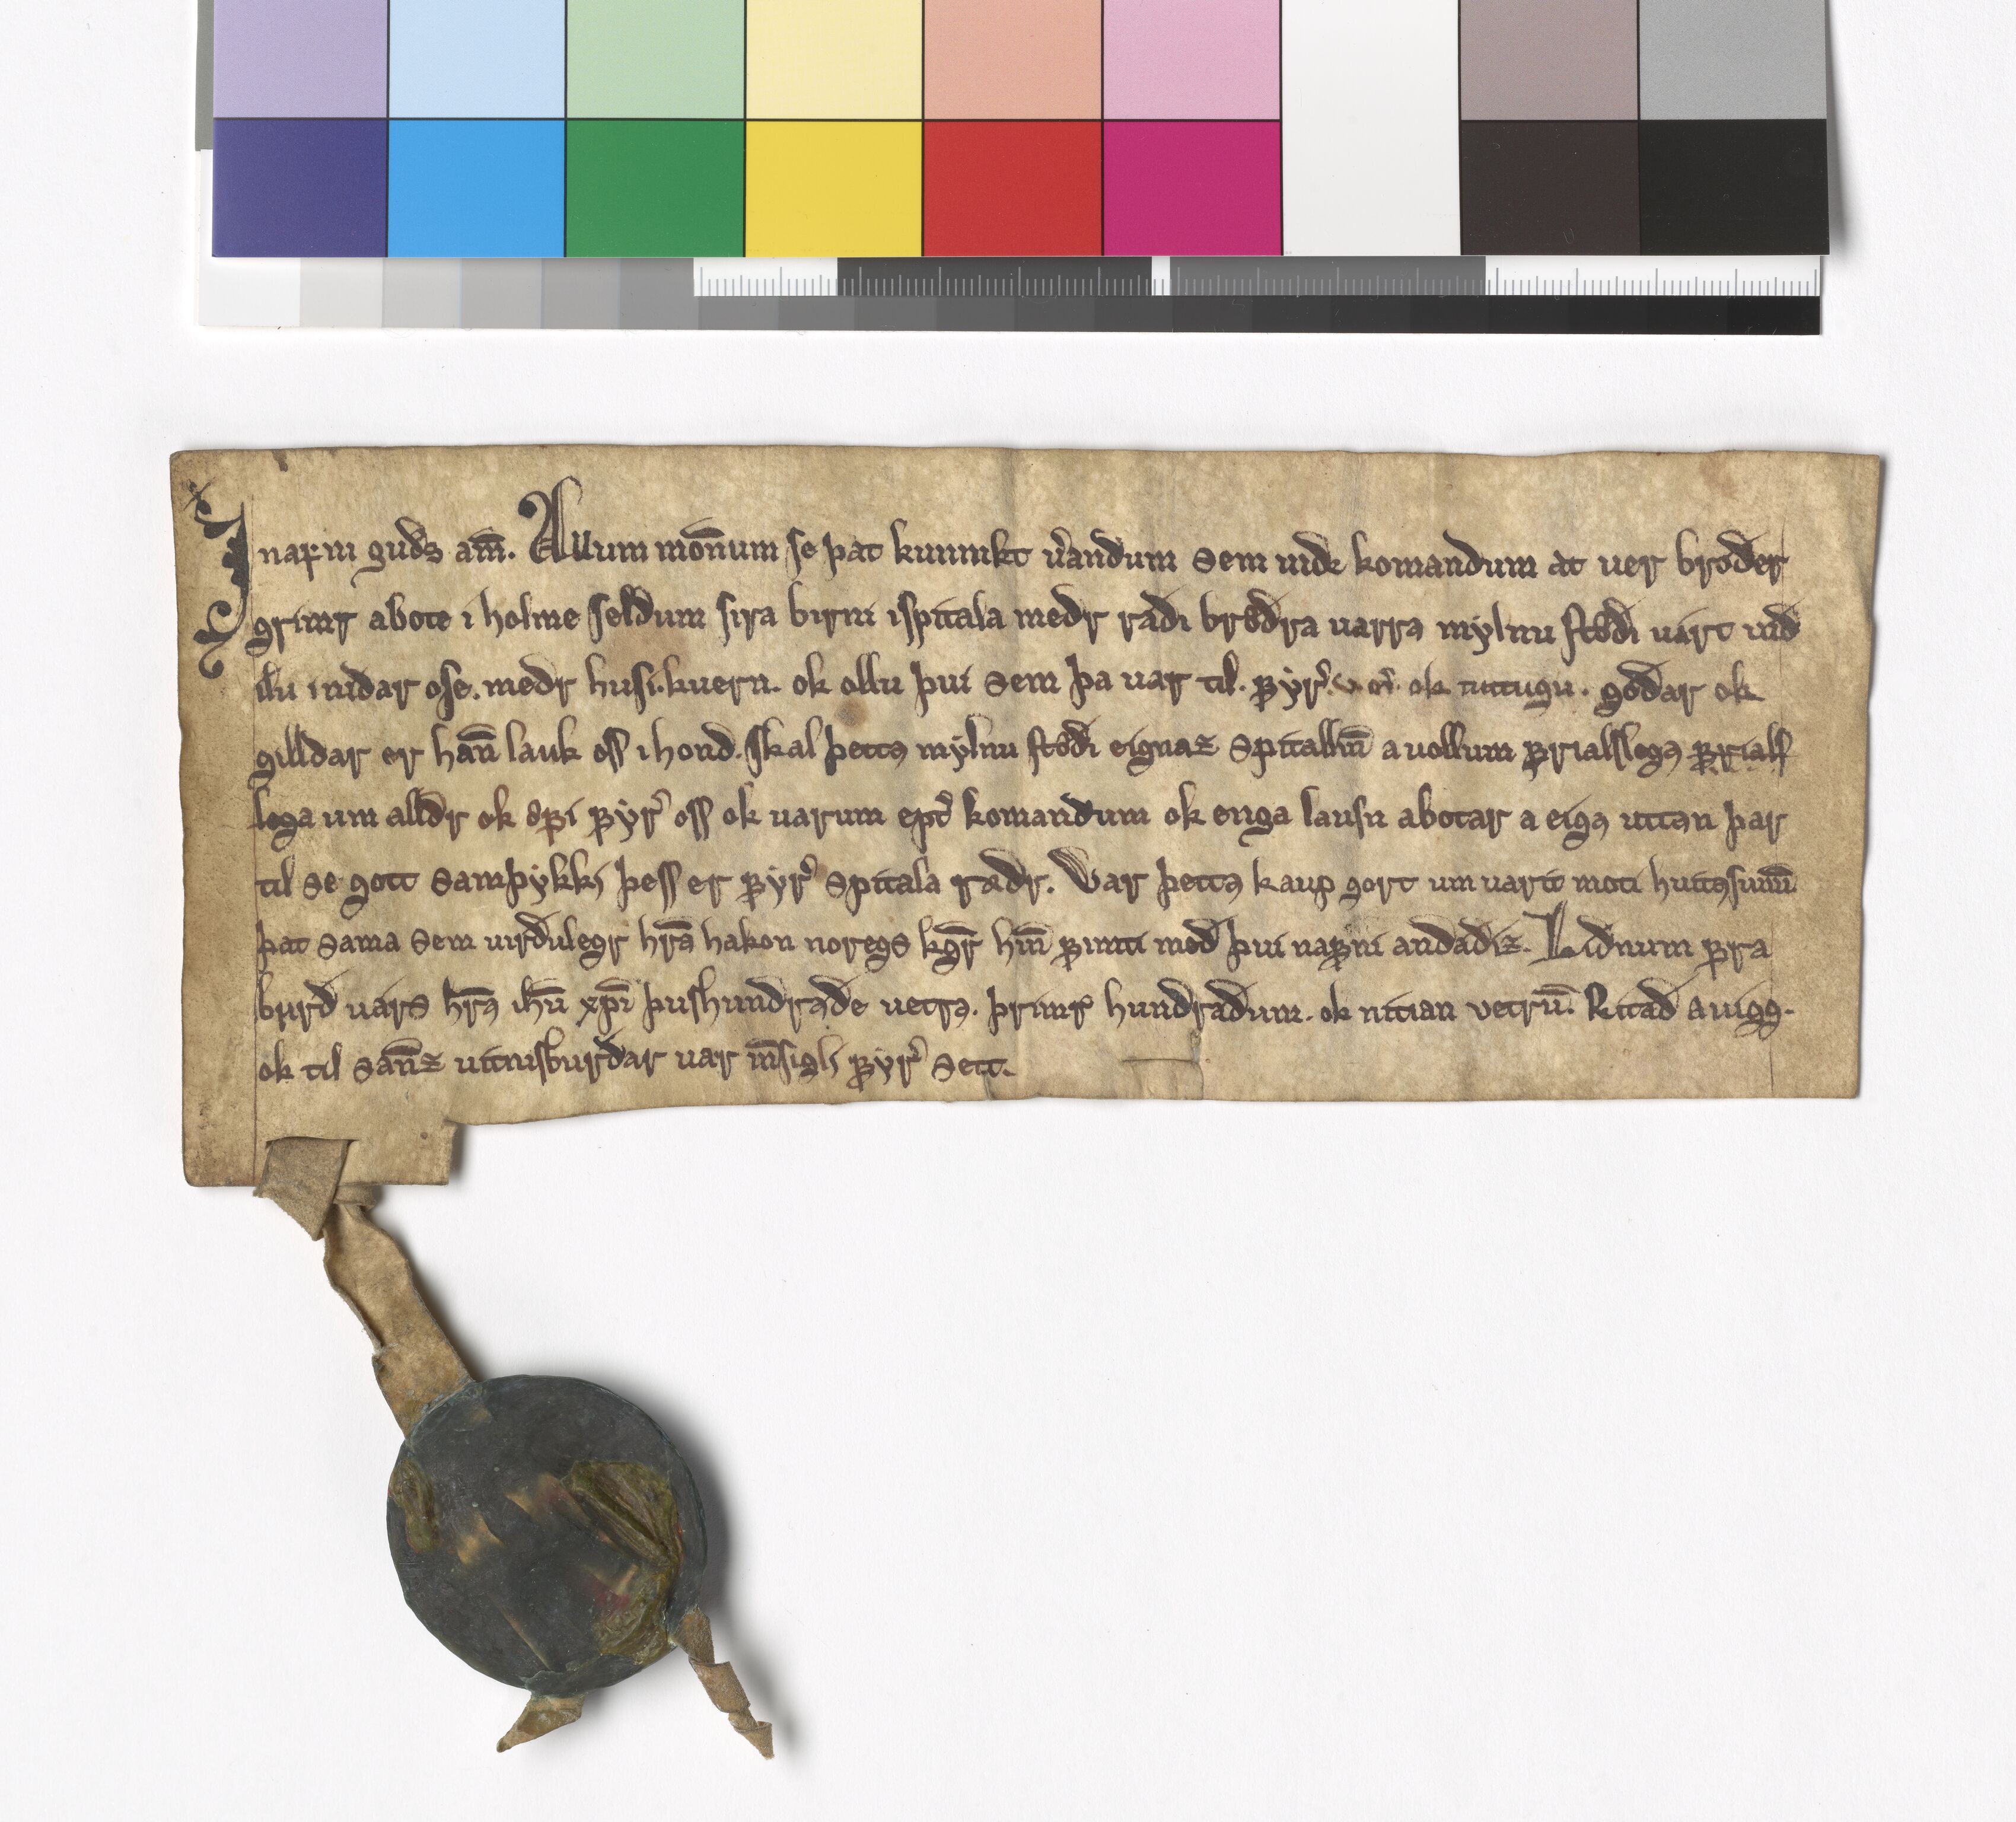 J nafni guds am̅. Allum mon̅um se þat kunnikt v̉andum sem uidꝛ komandum at uer brøder
grimr abote i holme seldum sira birni i spitala medr radi brødra uarra mylnu stødi uart uid
ilu i nidar ose. medr husi. kuern. ok ollu þui sem þa uar til. fyr᷑. ok nitugu. godar ok
gilldar er han̅ lauk oss i hond. skal þetta mylnu stødi eignaz spitallin̅ a uollum frialslega frials
lega um alldr ok øfi fyr᷑ oss ok uarum ept᷑ komandum ok enga lausn abotar a eiga uttan þar
til se gott samþykki þess er fyr᷑ spitala rædr. Var þetta kaup gort um uarit moti huitasun̅u
þat sama sem uirdulegr hr̅a hakon noregs kg̅r hin̅ fimti med þui nafni andadiz. Lidnum fra
burd uars hr̅a ihu̅ xp̅i þushundrade uetra. þrimr hundradum. ok nitian vetru̅. Ritad a uigg.
ok til san̅z uitnisburdar uar in̅sigli fyr᷑ sett.